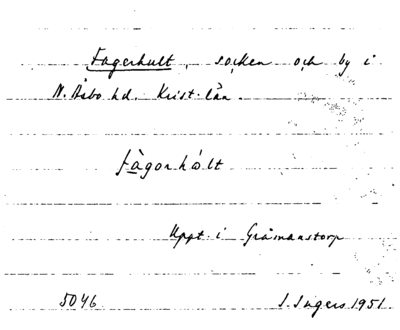 Fagerhult, socken och by i
N. Åsbo hd. Krist. län.
fàgərhúlt
Uppt. i Gråmanstorp
5046 I. Ingers 1951